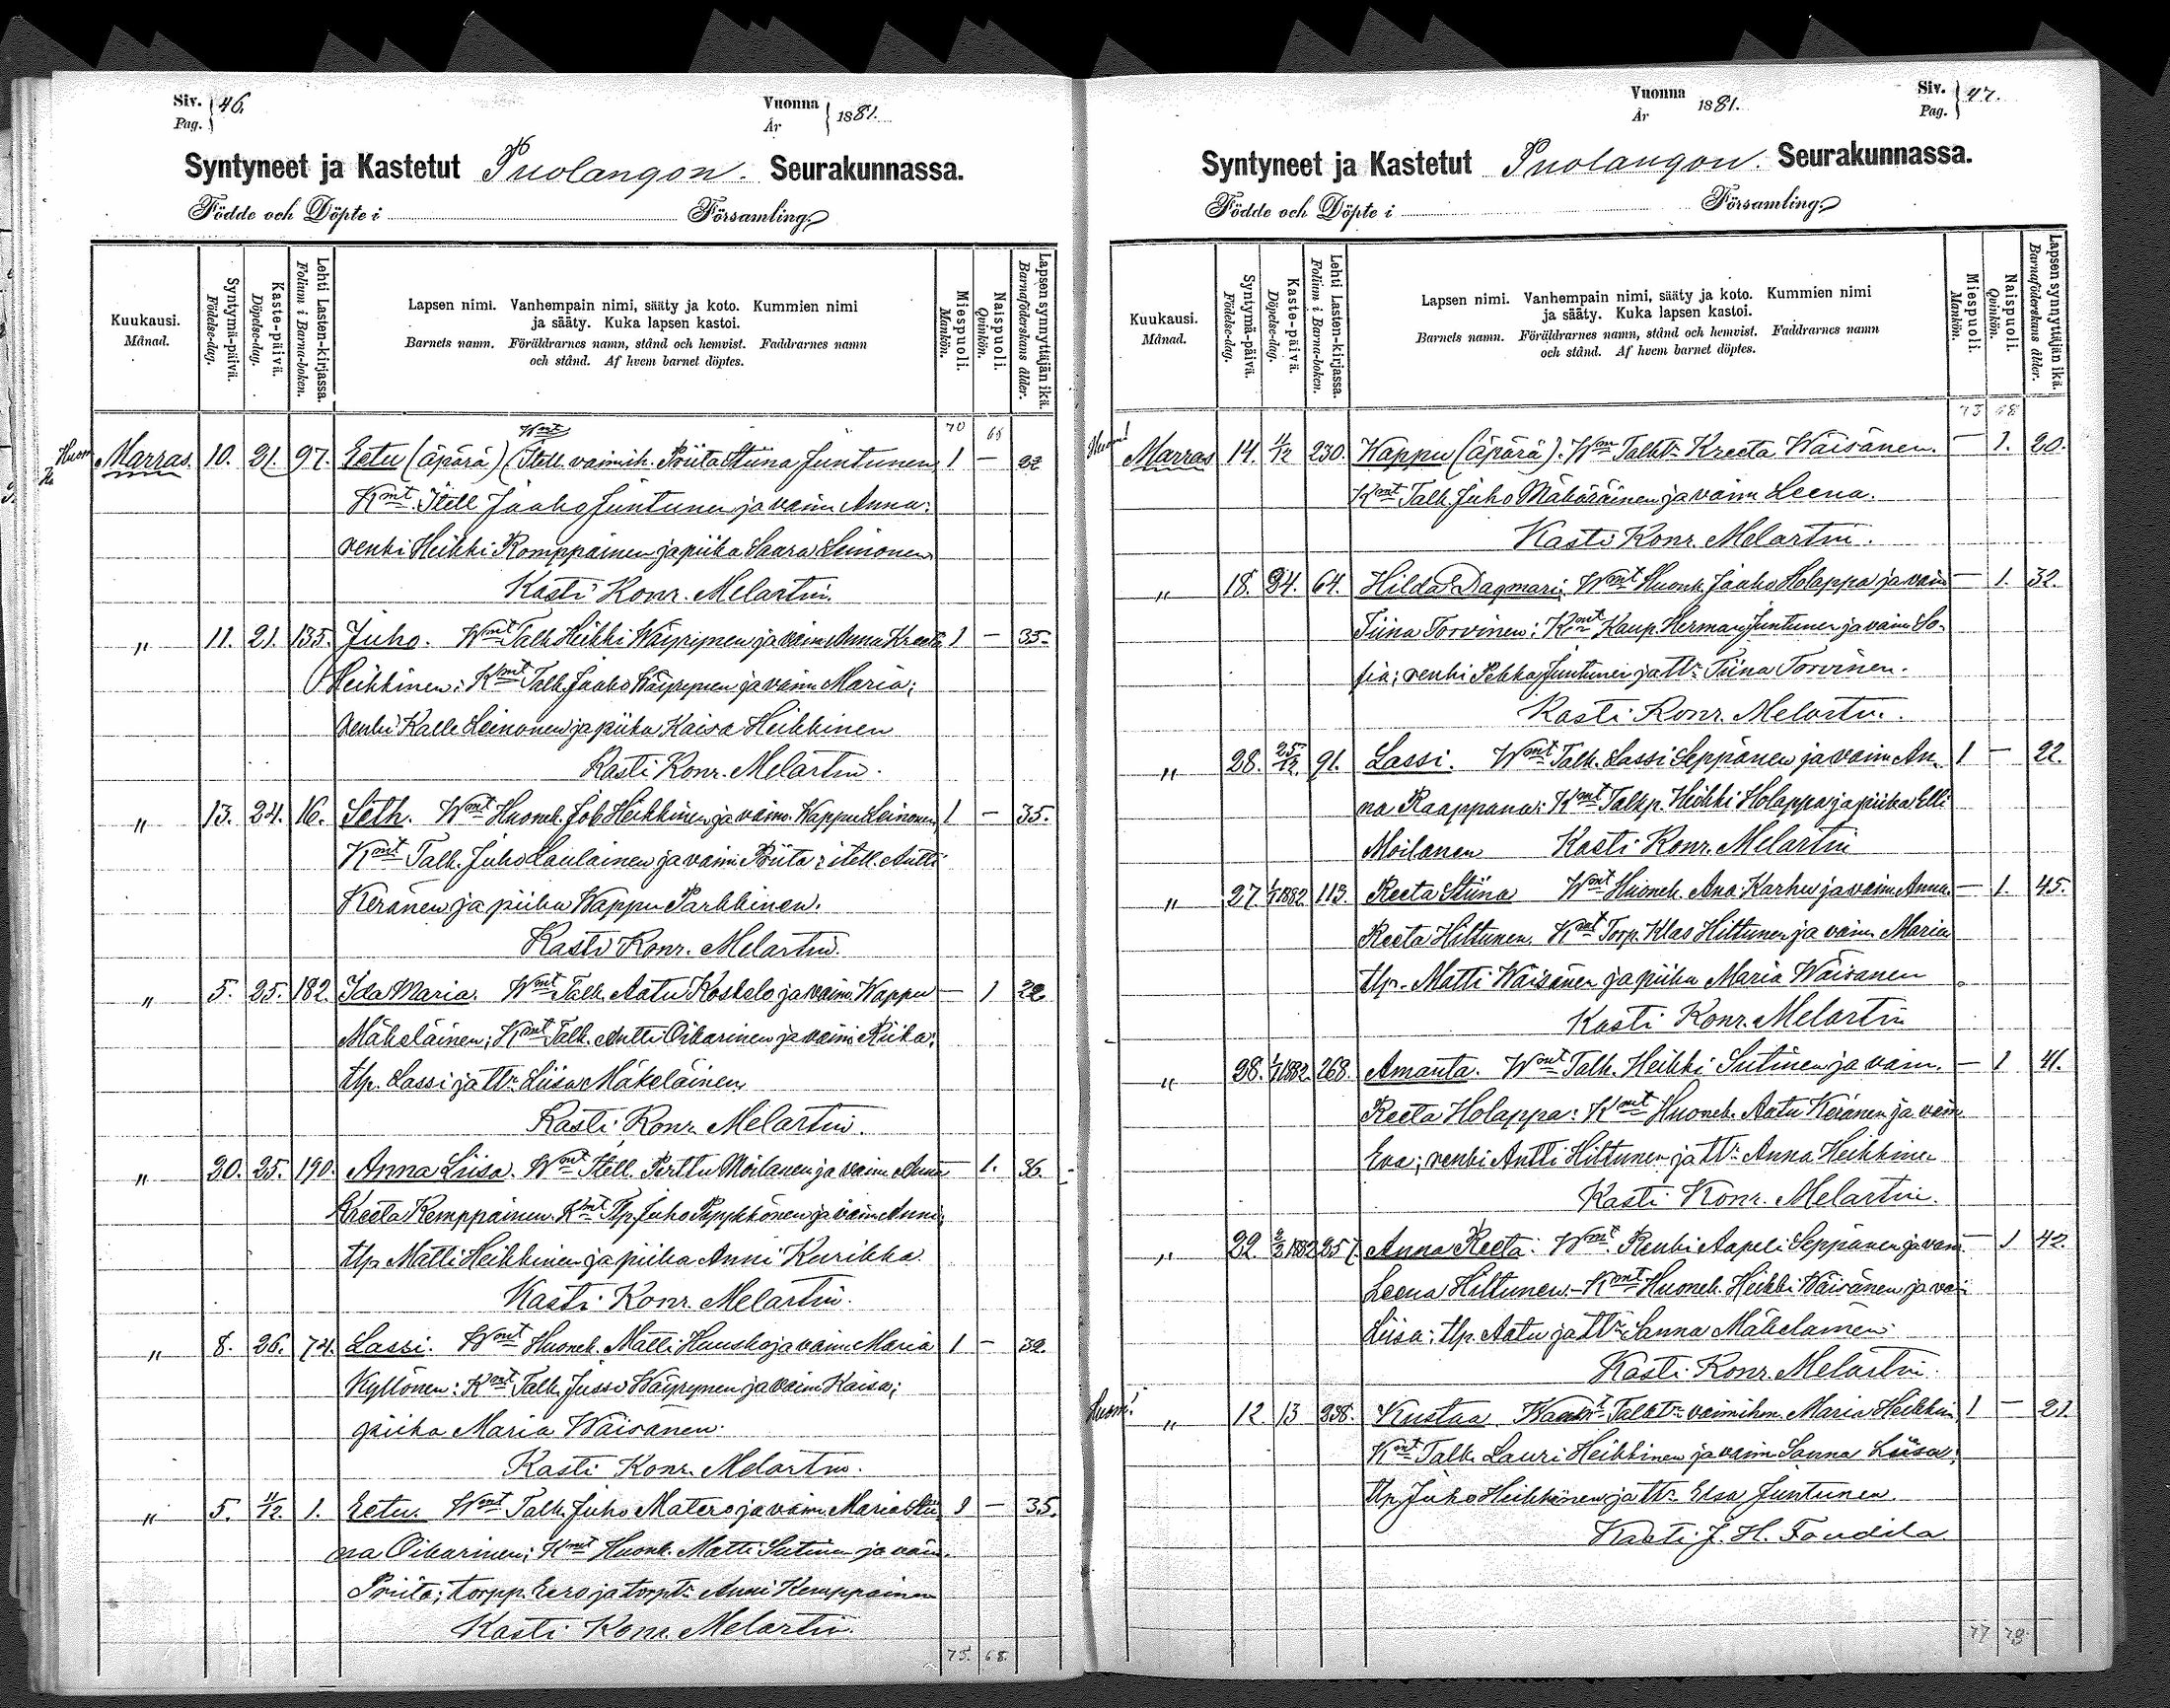 Siv. Pag. } 46.
Vuonna År } 1881.
Syntyneet ja Kastetut Puolangon. Seurakunnassa.
Födde och Döpte i Församling.
Kuukausi. Månad.
Syntymä-päivä. Födelse-dag.
Kaste-päivä. Döpelse-dag.
Lehti Lasten-kirjassa. Folium i Barna-boken.
Lapsen nimi. Vanhempain nimi, sääty ja koto. Kummien nimi
ja sääty. Kuka lapsen kastoi.
Barnets namn. Föräldrarnes namn, stånd och hemvist. Faddrarnes namn
och stånd. Af hvem barnet döptes.
Miespuoli. Mankön.
Naispuoli. Qvinkön.
Lapsen synnyttäjän ikä. Barnaföderskans ålder.
70 65
Wmt
Marras. 10. 21. 97. Eetu (äpärä) (Itell. vaimih. Priita Stiina Juntunen 1 — 22
Kmt Itell Jaako Juntunen ja vaim Anna;
renki Heikki Romppainen ja piika Saara Leinonen
Kasti Konr. Melartin.
" 11. 21. 135. Juho. Wmt Talk Heikki Wäyrynen ja vaim Anna Kreeta 1 — 35.
Heikkinen: Kmt Talk. Jaako Wäyrynen ja vaim Maria;
renki Kalle Leinonen ja piika Kaisa Heikkinen
Kasti Konr. Melartin.
" 13. 24. 16. Seth. Wmt Huonek. Job Heikkinen ja vaim. Wappu Leinonen 1 — 35.
Kmt Talk. Juho Laulainen ja vaim Priita; itell. Antti
Keränen ja piika Wappu Parkkinen.
Kasti Konr. Melartin.
" 5. 25. 182. Ida Maria. Wmt Talk. Aatu Koskelo ja vaim. Wappu — 1 22
Mäkeläinen; Kmt Talk. Antti Oikarinen ja vaim Riika;
tlp. Lassi ja ttr Liisa Mäkeläinen
Kasti Konr. Melartin.
" 20. 25. 190. Anna Liisa. Wmt Itell. Perttu Moilanen ja vaim Anna — 1. 36.
Kreeta Kemppainen. Kmt Tlp. Juho Pyykkönen ja vaim Anni;
tlp Matti Heikkinen ja piika Anni Kurikka.
Kasti Konr. Melartin.
" 8. 26. 74. Lassi. Wmt Huonek. Matti Huusko ja vaim Maria 1 — 32.
Kyllönen: Kmt Talk. Jussi Wäyrynen ja vaim Kaisa;
piika Maria Wäisänen.
Kasti Konr. Melartin.
" 5. 11/12. 1. Eetu. Wmt Talk. Juho Matero ja vaim. Maria Stii 1 — 35.
na Oikarinen; Kmt Huonk. Matti Sutinen ja vaim.
Priita; torpp. Eero ja torptr Anni Kemppainen
Kasti Konr. Melartin.
75. 68.
Vuonna År 1881.
Siv. Pag. } 47.
Syntyneet ja Kastetut Puolangon. Seurakunnassa.
Födde och Döpte i Församling.
Kuukausi. Månad.
Syntymä-päivä. Födelse-dag.
Kaste-päivä. Döpelse-dag.
Lehti Lasten-kirjassa. Folium i Barna-boken.
Lapsen nimi. Vanhempain nimi, sääty ja koto. Kummien nimi
ja sääty. Kuka lapsen kastoi.
Barnets namn. Föräldrarnes namn, stånd och hemvist. Faddrarnes namn
och stånd. Af hvem barnet döptes.
Miespuoli. Mankön.
Naispuoli. Qvinkön.
Lapsen synnyttäjän ikä. Barnaföderskans ålder.
75 68
Huom!
Marras 14. 4/12 230. Wappu (äpärä). Wm Talktr Kreeta Wäisänen. — 1. 20.
Kmt Talk Juho Mäkäräinen ja vaim Leena.
Kasti Konr. Melartin.
" 18. 24. 64. Hilda Dagmari. Wmt Huonk. Jaako Holappa ja vaim — 1. 32.
Tiina Torvinen: Kmt Kaup. Herman Juntunen ja vaim So-
fia; renki Pekka Juntunen ja ttr Tiina Torvinen.
Kasti Konr. Melartin.
" 28. 25/12. 91. Lassi. Wmt Talk. Lassi Seppänen ja vaim An- 1 — 22.
na Raappana: Kmt Talkp. Heikki Holappa ja piika Elli
Moilanen Kasti Konr. Melartin
" 27 1/1 1882 113. Reeta Stiina Wmt Huonek. Ana Karhu ja vaim Anna — 1. 45.
Reeta Hiltunen. Kmt Torp. Klas Hiltunen ja vaim. Maria
tlp. Matti Wäisänen ja piika Maria Wäisänen
Kasti Konr. Melartin
" 28. 1/1 1882. 268. Amanta. Wmt Talk. Heikki Sutinen ja vaim. — 1 41.
Reeta Holappa: Kmt Huonek. Aatu Keränen ja vaim
Eva; renki Antti Hiltunen ja ttr Anna Heikkinen
Kasti Konr. Melartin.
" 22 2/2 1882 257. Anna Reeta. Wmt Renki Aapeli Seppänen ja vaim — 1 42.
Leena Hiltunen. Kmt Huonek. Heikki Wäisänen ja vai
Liisa; tlp. Aatu ja ttr Sanna Mäkeläinen
Kasti Konr. Melartin.
Huom!
" 12 13 238. Kustaa. Talktr vaimihm. Maria Heikkin 1 — 21.
Kmt Talk. Lauri Heikkinen ja vaim Sanna Liisa;
tlp Juho Heikkinen ja ttr Elsa Juntunen.
Kasti J. H. Toudila
77 73.